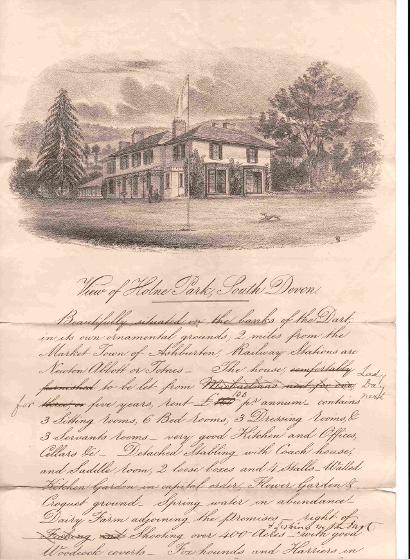 View of Holne Park, South Devon.
Beautifully situated on the banks of the Dart,
in its own ornamental grounds, 2 miles from the
Market Town of Ashburton. Railway Stations are
Newton Abbott or Totnes — The house, comfortably
furnished to be let from Michaelmas next for one, Lady Day next
for three, or five years, rent £ pr annum contains
3 Sitting rooms, 6 Bed rooms, 3 Dressing rooms, &
3 Servants rooms — very good Kitchen and Offices,
Cellars &c — Detached Stabling with Coach house,
and Saddle room, 2 loose boxes and 4 Stalls — Walled
Kitchen Garden in capital order. Flower Garden &
Croquet ground. Spring water in abundance —
Dairy Farm adjoining the premises — right of
Fishing and Shooting over 400 Acres — with good
Woodcock coverts — Fox hounds and Harriers in